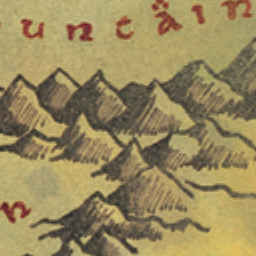 untäin
n